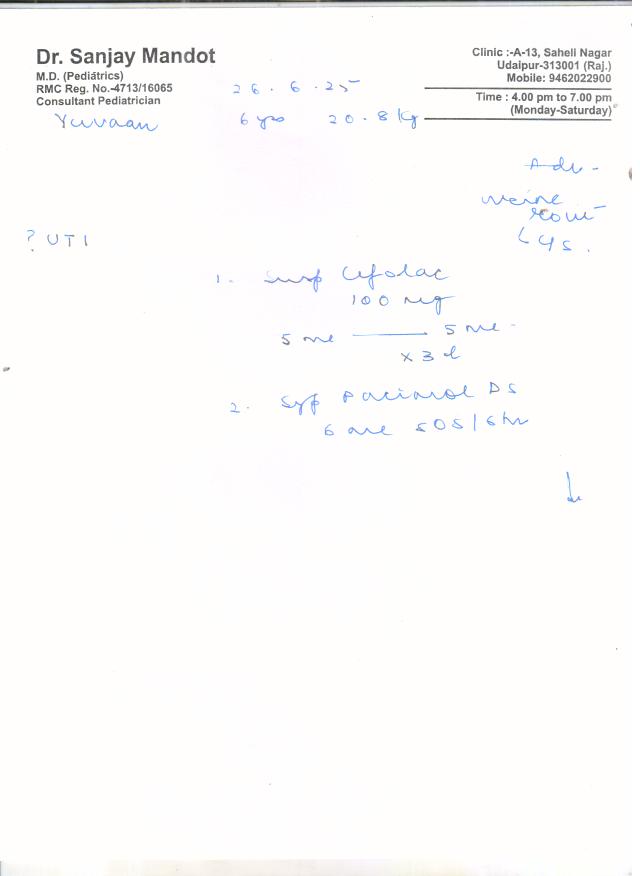 Dr. Sanjay Mandot
M.D. (Pediatrics)
RMC Reg. No.-4713/16065
Consultant Pediatrician
Clinic :-A-13, Saheli Nagar
Udaipur-313001 (Raj.)
Mobile: 9462022900
Time : 4.00 pm to 7.00 pm
(Monday-Saturday)
26.6.25
Yuvaan 6 yrs 20.8 kg
Adv -
urine
rout
c/s.
? UTI
1. Susp Cefolac
100 mg
5 ml — 5 ml
x 3 d
2. Syp Pacimol DS
6 ml SOS/6hr